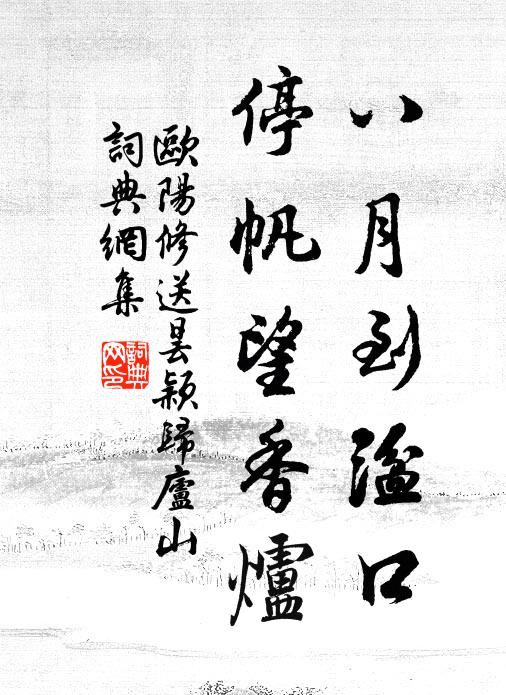 八月到湓口
停帆望香爐
歐陽修送曇穎歸廬山
詞典網集
詞典網印